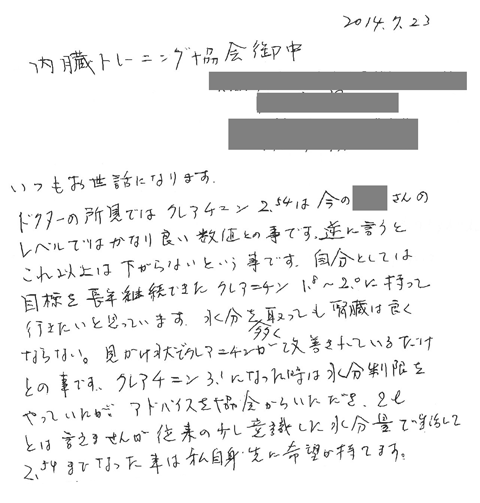 2014.7.23
内臓トレーニング協会御中
いつもお世話になります。
ドクターの所見では クレアチニン 2.54は 今の さんの
レベルではかなり良い数値との事です。逆に言うと
これ以上は下がらないという事です。自分としては
目標を長年継続できた クレアチニン 1.8〜2.0に持って
行きたいと思っています。水分を多く取っても腎臓は良く
ならない。見かけ状でクレアチニンが改善されているだけ
との事です。クレアチニン 3.1になった時は水分制限を
やっていたが アドバイスを協会からいただき、2ℓ
とは言えませんが従来の少し意識した水分量で生活して
2.54までなった事は私自身先に希望が持てます。